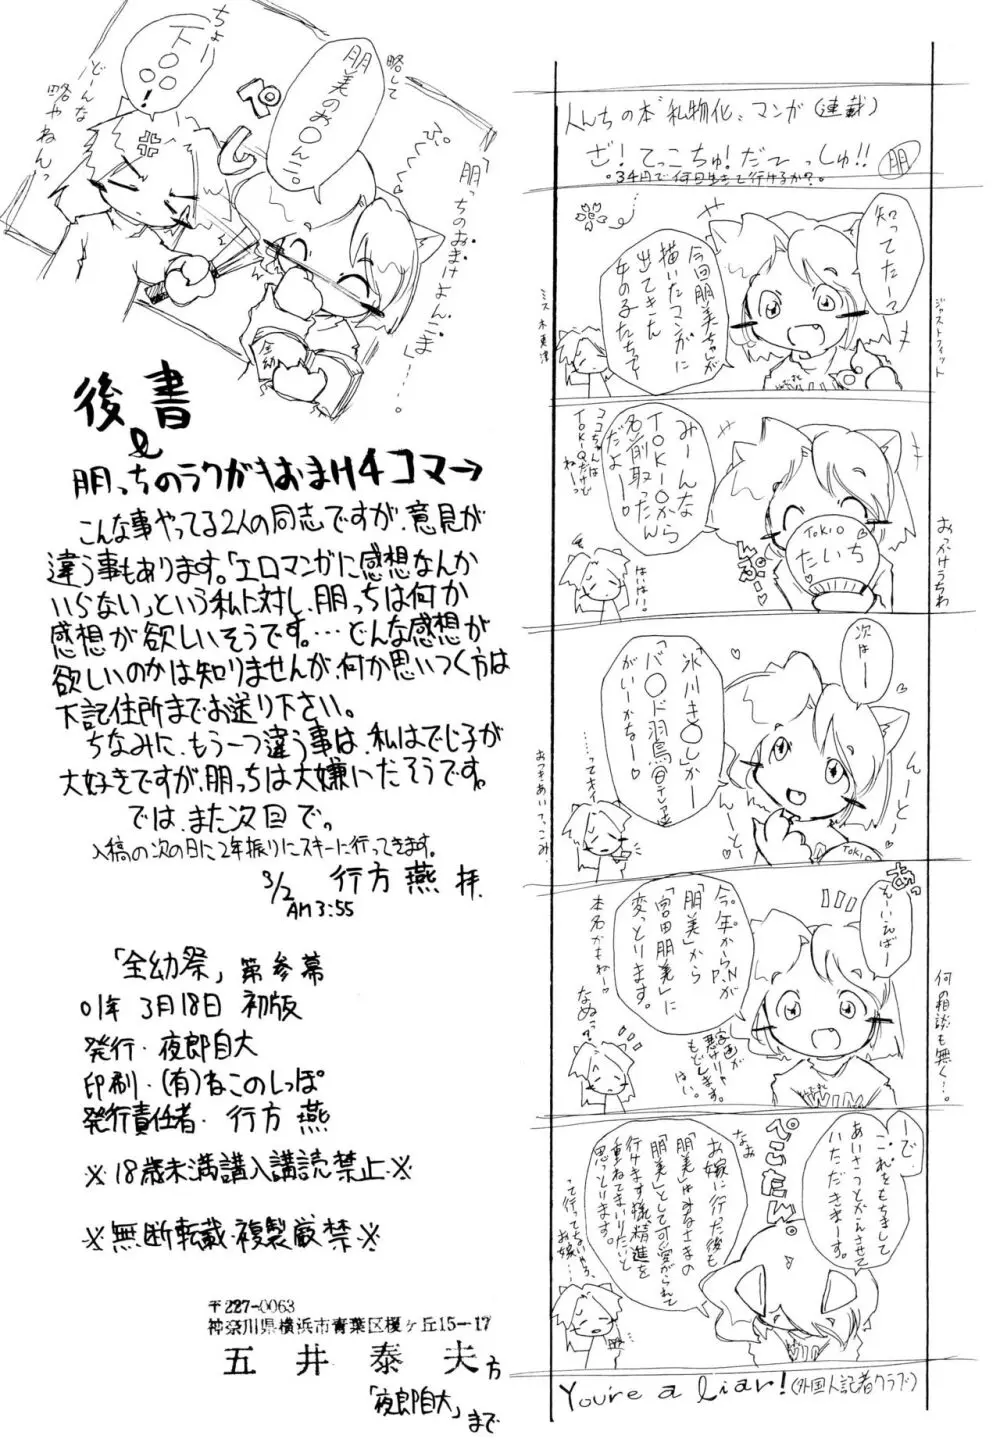 ちょー
下〇〇〇!
どーんな
略やねんっ
略して
朋美のお〇んこ。
ぷしっ
ぷくくく♡
「朋っちのおまけよんこま」…。
全幼
後書
&
朋っちのラクガキおまけ4コマ→
こんな事やってる2人の同志ですが、意見が
違う事もあります。「エロマンガに感想なんか
いらない」という私に対し、朋っちは何か
感想が欲しいそうです。…どんな感想が
欲しいのかは知りませんが、何か思いつく方は
下記住所までお送り下さい。
ちなみに、もう一つ違う事は、私はでじ子が
大好きですが、朋っちは大嫌いだそうです。
では、また次回で。
入稿の次の日に2年振りにスキーに行ってきます。
3/2 AM3:55
行方 燕 拝.
「全幼祭」第参幕
01年 3月18日 初版
発行・夜郎自大
印刷・(有)ねこのしっぽ
発行責任者・行方 燕
※18歳未満講入講読禁止※
※無断転載・複製厳禁※
〒227-0063
神奈川県横浜市青葉区榎ヶ丘15-17
五井泰夫方
「夜郎自大」まで
人んちの本“私物化”マンガ(連載)
ざ!てっこちゅ!だてっしゅ!! 朋
。34円で何日生きて行けるか?。
知ってたーマ
今回朋美ちゃんが
描いたマンガに
出てきた
女の子たちって
ミス木更津
ジャストフィット
みーんな
TOKIOから
名前取ったんだよー。
ココちゃんは
TOKIOだけどねーっ
TOKIO
たいち
はいはい!
おっかけうちわ
次はー
「氷川き〇し」か
「バ〇ド羽鳥@テレ透」
がいーかなー♡
んーとー
んーとー♡
…ってオイ
おつきあいてっこみ
TOKIO
あっ
そーいえばー
今年からP.Nが
「朋美」から
「宮田朋美」に
変っとります。
本名かもねー♡
字画が
悪けりゃ
もどします。
はい。
なぬっ?
何の相談も無く…。
ーでー
これをもちまして
あいさつとかえさせて
いただきまーす。
ぺこたん。
なお
お嫁に行った後も
「朋美」はみなさまの
「朋美」として可愛がられて
行けます様、精進を
重ねてまいりたいと
思っとります。
って行ってないやろ、
お嫁…。
You're a liar!(外国人記者クラブ)